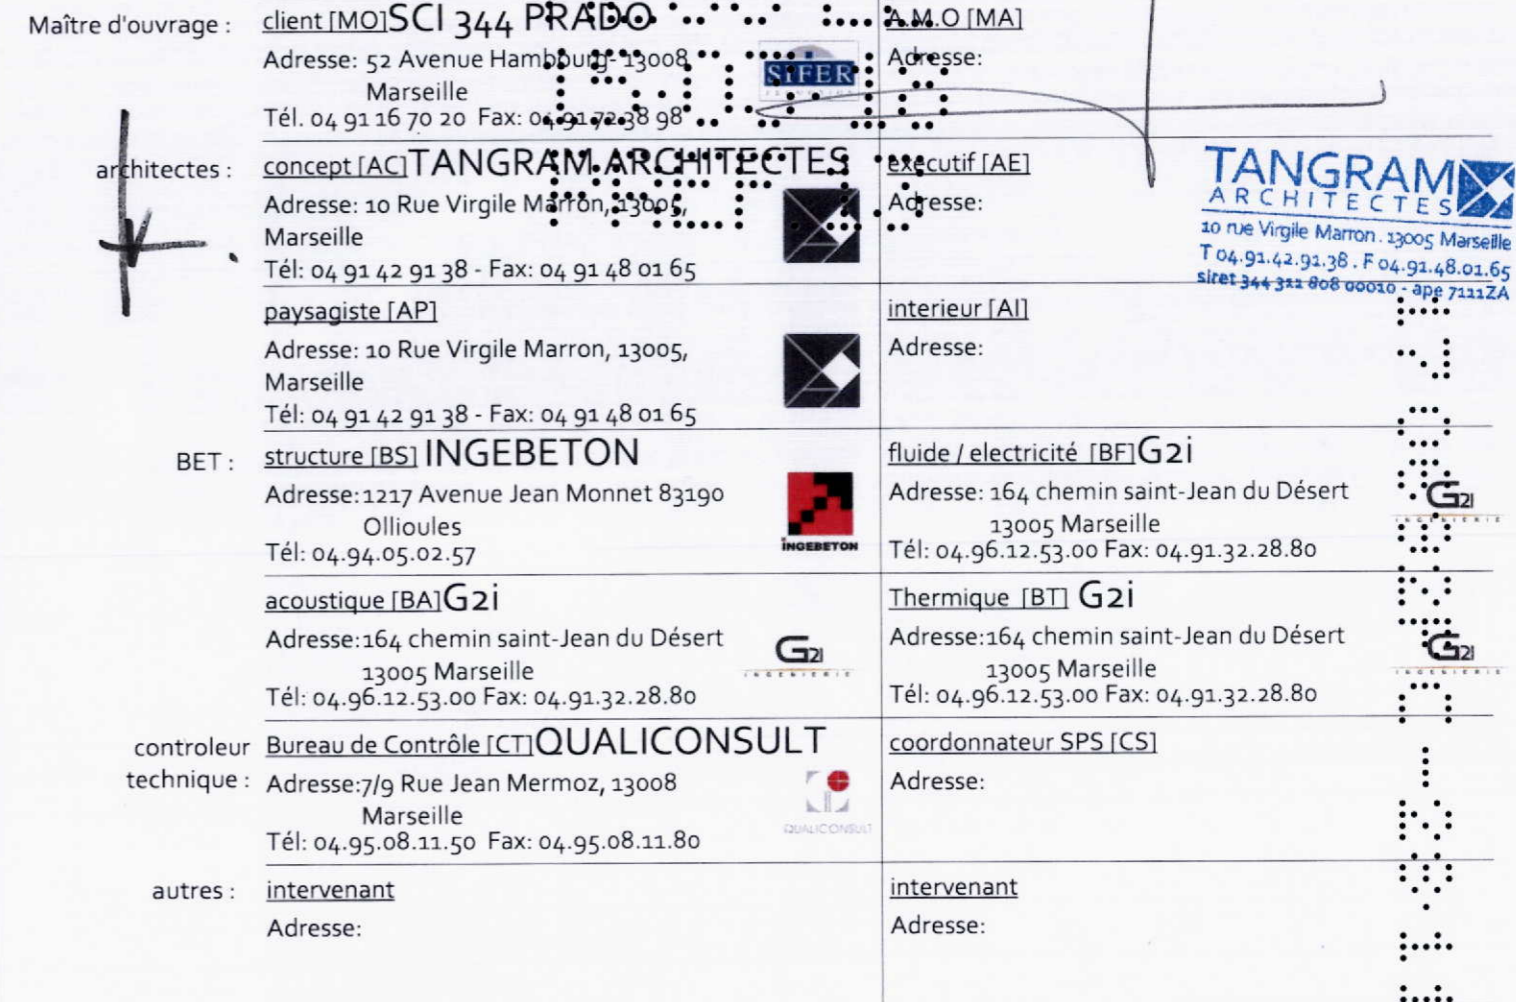 Maître d'ouvrage :
client [MO] SCI 344 PRADO
Adresse: 52 Avenue Hambourg- 13008
Marseille
Tél. 04 91 16 70 20 Fax: 04 91 72 38 98
SIFER
A.M.O [MA]
Adresse:
architectes :
concept [AC] TANGRAM ARCHITECTES
Adresse: 10 Rue Virgile Marron, 13005,
Marseille
Tél: 04 91 42 91 38 - Fax: 04 91 48 01 65
executif [AE]
Adresse:
TANGRAM
ARCHITECTES
10 rue Virgile Marron . 13005 Marseille
T 04.91.42.91.38 . F 04.91.48.01.65
siret 344 322 808 00010 - ape 7111ZA
paysagiste [AP]
Adresse: 10 Rue Virgile Marron, 13005,
Marseille
Tél: 04 91 42 91 38 - Fax: 04 91 48 01 65
interieur [AI]
Adresse:
BET :
structure [BS] INGEBETON
Adresse: 1217 Avenue Jean Monnet 83190
Ollioules
Tél: 04.94.05.02.57
INGEBETON
fluide / electricité [BF] G2i
Adresse: 164 chemin saint-Jean du Désert
13005 Marseille
Tél: 04.96.12.53.00 Fax: 04.91.32.28.80
G2I
INGENIERIE
acoustique [BA] G2i
Adresse: 164 chemin saint-Jean du Désert
13005 Marseille
Tél: 04.96.12.53.00 Fax: 04.91.32.28.80
G2I
INGENIERIE
Thermique [BT] G2i
Adresse: 164 chemin saint-Jean du Désert
13005 Marseille
Tél: 04.96.12.53.00 Fax: 04.91.32.28.80
G2I
INGENIERIE
controleur
technique :
Bureau de Contrôle [CT] QUALICONSULT
Adresse: 7/9 Rue Jean Mermoz, 13008
Marseille
Tél: 04.95.08.11.50 Fax: 04.95.08.11.80
QUALICONSULT
coordonnateur SPS [CS]
Adresse:
autres :
intervenant
Adresse:
intervenant
Adresse: